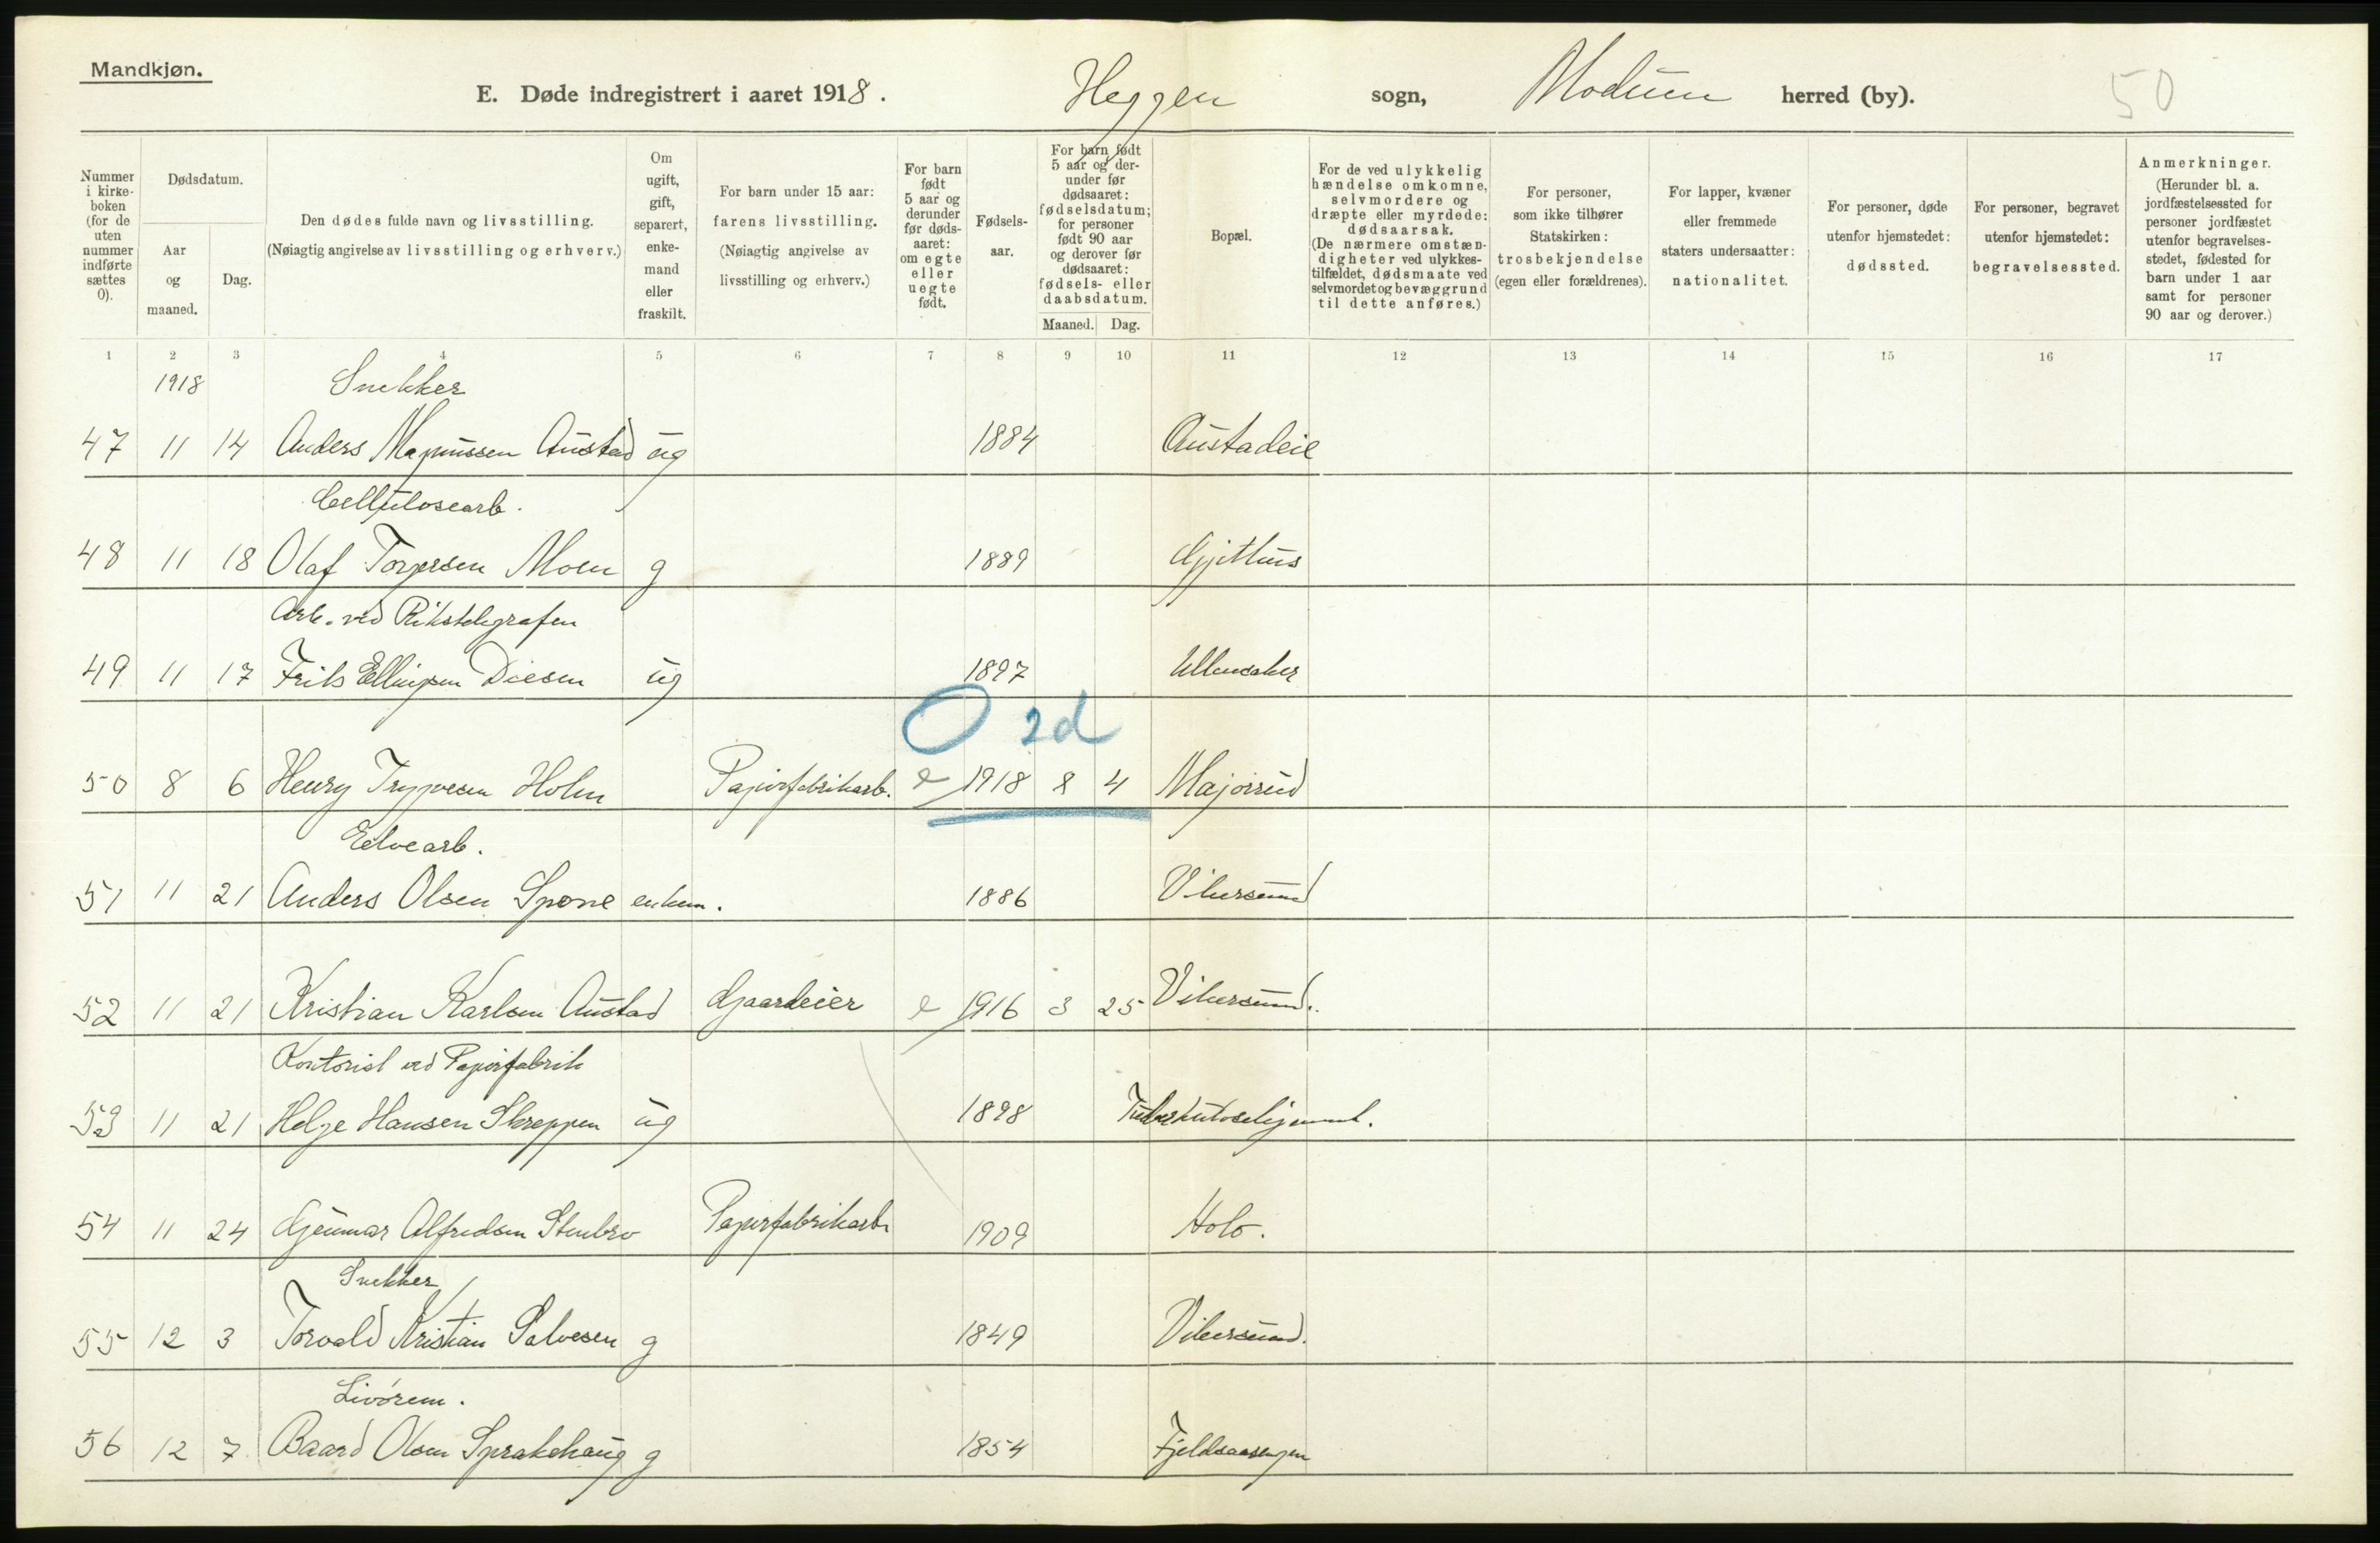 Mandkjøn.
E. Døde indregistrert i aaret 1918. Heggen sogn, Modum herred (by). 50
Nummer i kirke-boken (for de uten nummer indførte sættes 0).
Dødsdatum.
Aar og maaned.
Dag.
Den dødes fulde navn og livsstilling. (Nøiagtig angivelse av livsstilling og erhverv.)
Om ugift, gift, separert, enke-mand eller fraskilt.
For barn under 15 aar: farens livsstilling. (Nøiagtig angivelse av livsstilling og erhverv.)
For barn født 5 aar og derunder før døds-aaret: om egte eller uegte født.
Fødsels-aar.
For barn født 5 aar og der-under før dødsaaret: fødselsdatum; for personer født 90 aar og derover før dødsaaret: fødsels- eller daabsdatum.
Maaned. Dag.
Bopæl.
For de ved ulykkelig hændelse omkomne, selvmordere og dræpte eller myrdede: dødsaarsak. (De nærmere omstæn-digheter ved ulykkes-tilfældet, dødsmaate ved selvmordet og bevæggrund til dette anføres.)
For personer, som ikke tilhører Statskirken: trosbekjendelse (egen eller forældrenes).
For lapper, kvæner eller fremmede staters undersaatter: nationalitet.
For personer, døde utenfor hjemstedet: dødssted.
For personer, begravet utenfor hjemstedet: begravelsessted.
Anmerkninger. (Herunder bl. a. jordfæstelsessted for personer jordfæstet utenfor begravelses-stedet, fødested for barn under 1 aar samt for personer 90 aar og derover.)
1 2 3 4 5 6 7 8 9 10 11 12 13 14 15 16 17
1918 Snekker
47 11 14 Anders Magnussen Austad ug 1884 Austadeie
Cellulosearb.
48 11 18 Olaf Torgersen Moen g 1889 Gjithus
Arb. ved Rikstelegrafen
49 11 17 Frits Ellingsen Diesen ug 1897 Ullensaker
O 2d
50 8 6 Henry Trygvesen Holm Papirfabrikarb. e 1918 8 4 Majorrud
Elvearb.
51 11 21 Anders Olsen Spone enkem. 1886 Vikersund
52 11 21 Kristian Karlsen Austad Gaardeier e 1916 3 25 Vikersund.
Kontorist ved Papirfabrik
53 11 21 Helge Hansen Skreppen ug 1898 Tuberkulosehjemmet.
54 11 24 Gunnar Alfredsen Stenbro Papirfabrikarb 1909 Holo.
Snekker
55 12 3 Torvald Kristian Salvesen g 1849 Vikersund.
Livørem.
56 12 7 Baard Olsen Sprakehaug g 1854 Fjeldsaasengen